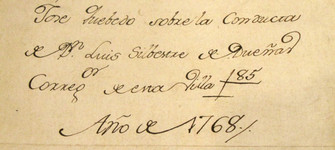 Jose Quebedo sobre la Conducta
de Dn Luis Silbestre de Dueñas
Corregor de esta Villa 185
Año de 1768